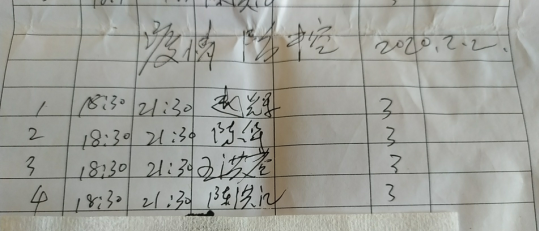 疫情防控 2020.2.2.
1 18:30 21:30 赵 3
2 18:30 21:30 陈华 3
3 18:30 21:30 王洪 3
4 18:30 21:30 陈洪 3